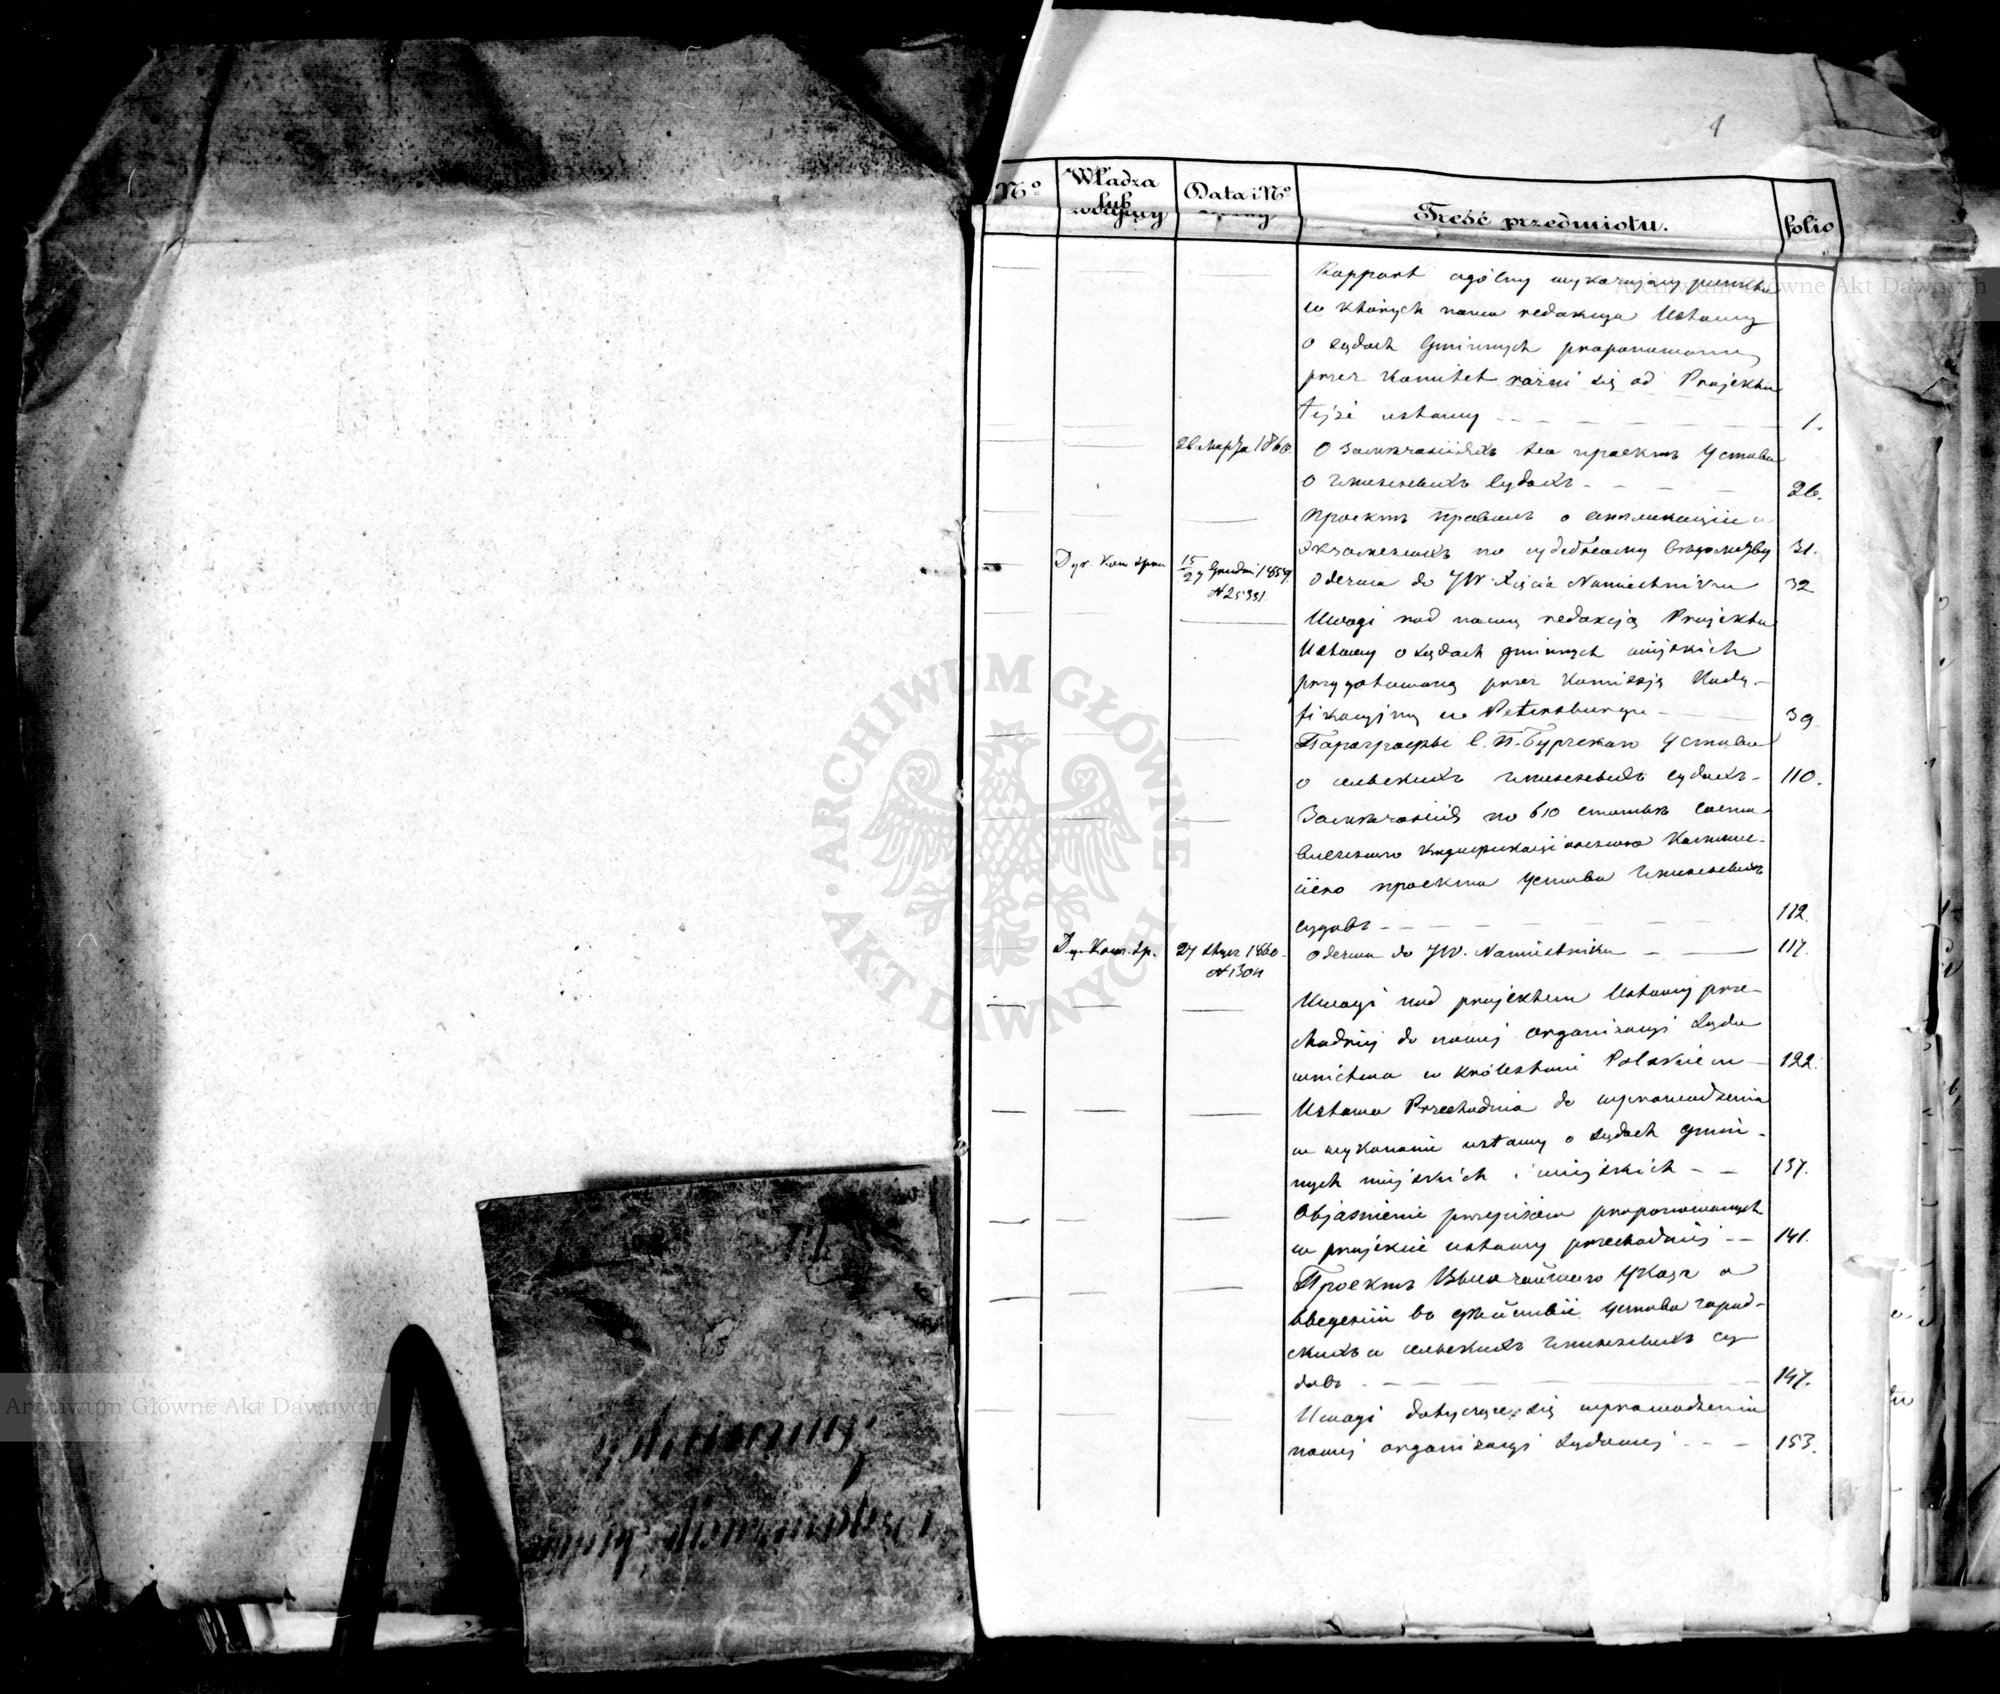 1
No
Władza
lub
Data i No
Treść przedmiotu.
folio
Rapport ogólny wykazujący punkta
w których nowa redakcya Ustawy
o sądach Gminnych proponowana
przez Komitet różni się od Projektu
tejże ustawy - - - - - - 1.
26 Марта 1860. О замѣчаніяхъ на проектъ Устава
о гминныхъ судахъ - - - - 26.
Проектъ правилъ о аппликаціи и
экзаменахъ по судебному вѣдомству 31.
Dyr. Kom. Spraw 15/27 Grudni 1859 Odezwa do JW. Xięcia Namiestnika 32
N 25331
Uwagi nad nową redakcją Projektu
Ustawy o sądach gminnych wiejskich
przygotowaną przez Komissję Kody-
fikacyjną w Petersburgu - 39
Параграфы С. П-Бургскаго Устава
о сельскихъ гминныхъ судахъ - 110.
Замѣчанія по 610 статьямъ соста-
вленнаго Кодификаціонною Коммис-
сіею проекта Устава Гминныхъ
судовъ - - - - - 112.
Dy. Kom. Sp. 27 Stycz 1860 - Odezwa do JW. Namiestnika - - 117.
N 1304
Uwagi nad projektem Ustawy prze-
chodniej do nowej organizacyi Sądo
wnictwa w Królestwie Polskiem - 122.
Ustawa Przechodnia do wprowadzenia
w wykonanie ustawy o sądach gmin-
nych miejskich i wiejskich - - 137.
Objaśnienie przepisów proponowanych
w projekcie ustawy przechodniej - - 141.
Проектъ Высочайшаго Указа о
введеніи въ дѣйствіе Устава город-
скихъ и сельскихъ гминныхъ су
довъ - - - - - 147.
Uwagi dotyczące się wprowadzenia
nowej organizacyi Sądowej - - - 153.
ARCHIWUM GŁÓWNE AKT DAWNYCH
Archiwum Główne Akt Dawnych
Archiwum Główne Akt Dawnych